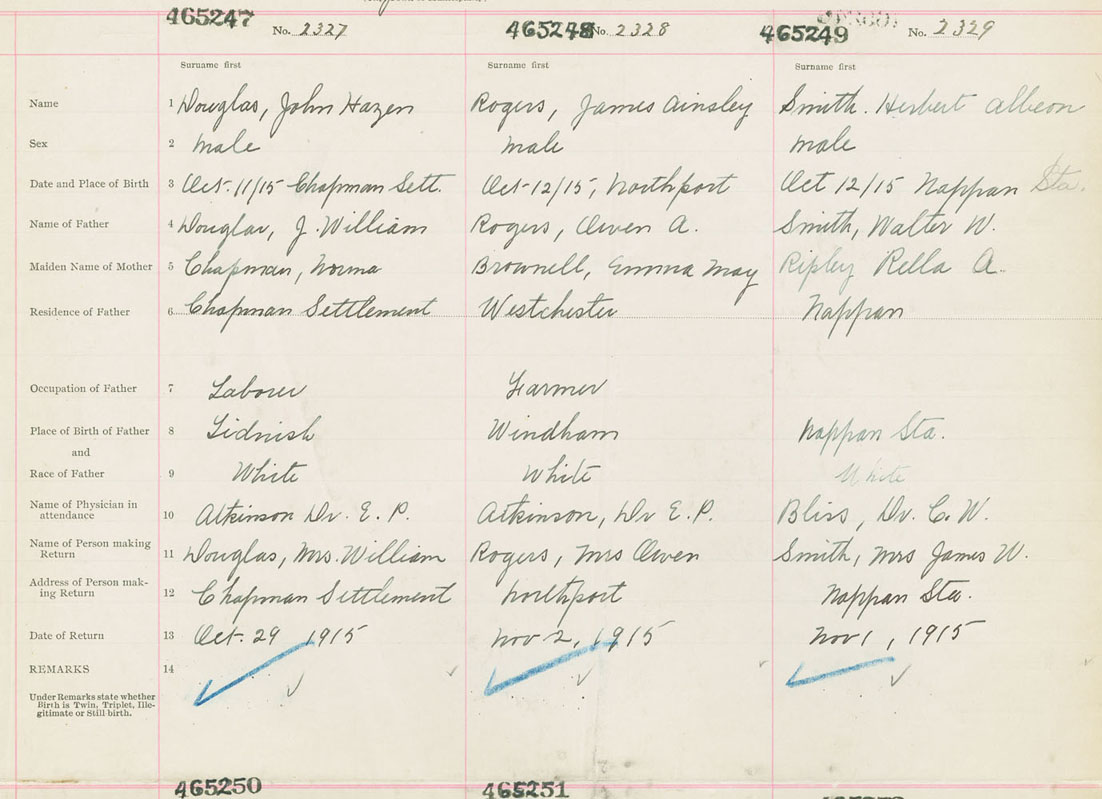 465247 No. 2327 465248 No. 2328 465249 No. 2329
Surname first Surname first Surname first
Name 1 Douglas, John Hazen Rogers, James Ainsley Smith. Herbert Albeon
Sex 2 Male Male Male
Date and Place of Birth 3 Oct. 11/15 Chapman Sett. Oct 12/15, Northport Oct 12/15 Nappan Sta.
Name of Father 4 Douglas, J. William Rogers, Owen A. Smith, Walter W.
Maiden Name of Mother 5 Chapman, Norma Brownell, Emma May Ripley Rella A.
Residence of Father 6 Chapman Settlement Westchester Nappan
Occupation of Father 7 Laborer Farmer
Place of Birth of Father 8 Lidnish Windham Nappan Sta.
and
Race of Father 9 White White White
Name of Physician in
attendance 10 Atkinson Dr. E. P. Atkinson, Dr E.P. Bliss, Dr. C. W.
Name of Person making
Return 11 Douglas, Mrs. William Rogers, Mrs Owen Smith, Mrs James W.
Address of Person mak-
ing Return 12 Chapman Settlement Northport Nappan Sta.
Date of Return 13 Oct. 29 1915 Nov 2, 1915 Nov 1, 1915
REMARKS 14
Under Remarks state whether
Birth is Twin, Triplet, Ille-
gitimate or Still-birth.
465250 465251